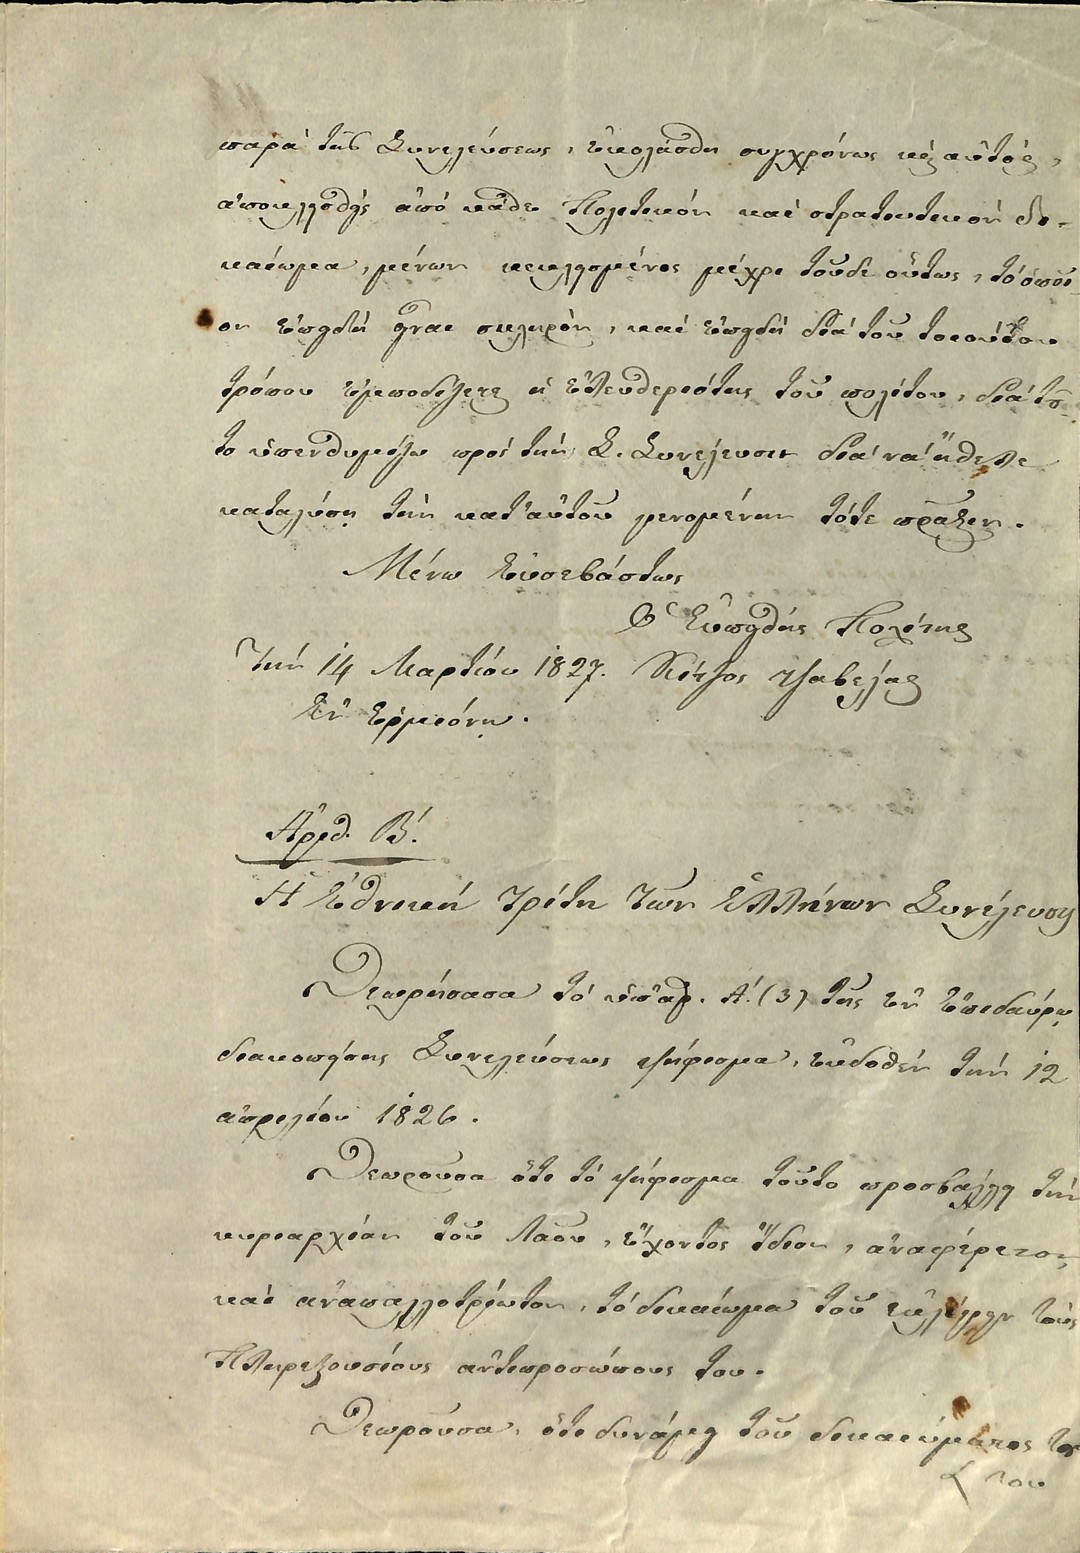 παρὰ τῆς Συνελεύσεως, ἐκολάσθη συγχρόνως κ' αὐτὸς,
ἀποκλεισθεὶς ἀπὸ κάθε Πολιτικὸν καὶ στρατιωτικὸν δι-
καίωμα, μένων κεκλεισμένος μέχρι τοῦδε οὕτως, τὸ ὁποῖ-
ον ἐπειδὴ εἶναι σκληρὸν, καὶ ἐπειδὴ διὰ τοῦ τοιούτου
τρόπου ἐμποδίζεται ἡ ἐλευθεριότης τοῦ πολίτου, διὰ τοῦ-
το ὑπενθυμίζω πρὸς τὴν Σ. Συνέλευσιν διὰ νὰ ἤθελε
καταλύσῃ τὴν κατ' αὐτοῦ γενομένην τότε πρᾶξιν.
Μένω Εὐσεβάστως
Ὁ Εὐπειθὴς Πολίτης
Τὴν 14 Μαρτίου 1827. Κίτζος τζαβέλας
Ἐν Ἑρμιόνῃ.
Ἀριθ. Β'.
Ἡ Ἐθνικὴ τρίτη τῶν Ἑλλήνων Συνέλευσις
Θεωρήσασα τὸ ὑπ' ἀρ. Α'. (3) τῆς ἐν Ἐπιδαύρῳ
διακοπείσης Συνελεύσεως ψήφισμα, ἐκδοθὲν τὴν 12
ἀπριλίου 1826.
Θεωροῦσα ὅτι τὸ ψήφισμα τοῦτο προσβάλλει τὴν
κυριαρχίαν τοῦ Λαοῦ, ἔχοντος ἴδιον, ἀναφέρετον,
καὶ ἀναπαλλοτρίωτον, τὸ δικαίωμα τοῦ ἐκλέγειν τοὺς
Πληρεξουσίους ἀντιπροσώπους του.
Θεωροῦσα, ὅτι δυνάμει τοῦ δικαιώματος το
του